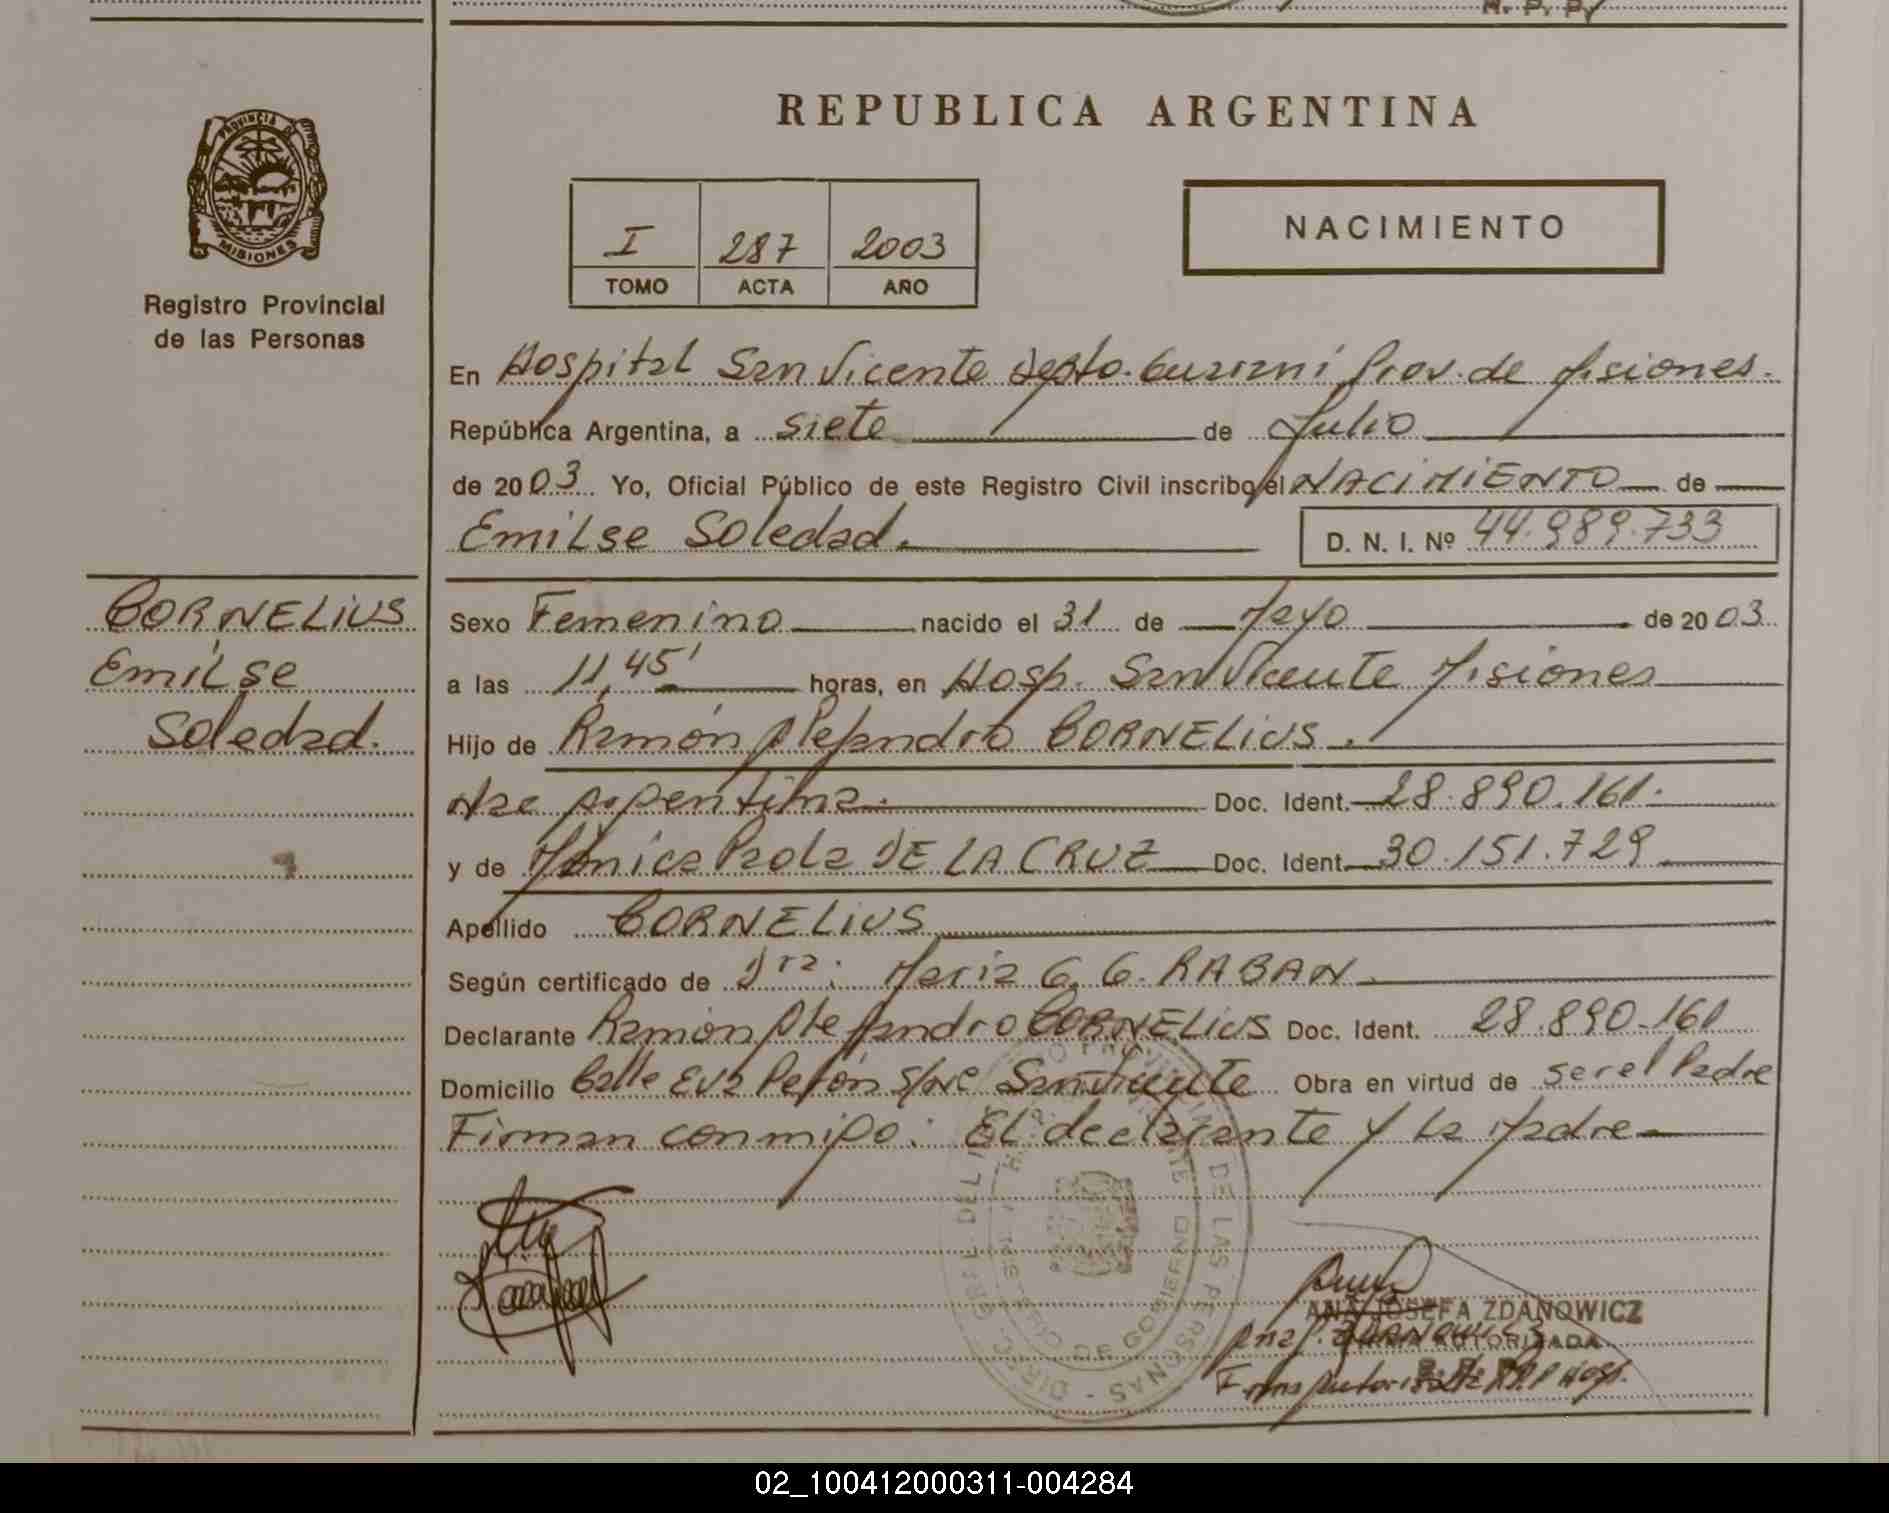 REPUBLICA ARGENTINA
PROVINCIA DE
MISIONES
Registro Provincial
de las Personas
I 287 2003
TOMO ACTA AÑO
NACIMIENTO
En Hospital San Vicente Depto. Guaraní Prov. de Misiones.
República Argentina, a siete de Julio
de 2003 Yo, Oficial Público de este Registro Civil inscribo el NACIMIENTO de
Emilse Soledad. D. N. I. Nº 44.989.733
CORNELIUS
Emilse
Soledad.
Sexo Femenino nacido el 31 de Mayo de 2003
a las 11,45' horas, en Hosp. San Vicente Misiones
Hijo de Ramón Alejandro CORNELIUS.
Nac Argentina. Doc. Ident. 28.890.161.
y de Mónica Paola DE LA CRUZ Doc. Ident. 30.151.729
Apellido CORNELIUS
Según certificado de Dra: Maria G. G. RABAN
Declarante Ramón Alejandro CORNELIUS Doc. Ident. 28.890.161
Domicilio Calle Eva Perón s/Nº San Vicente Obra en virtud de ser el Padre
Firman conmigo: El declarante y La Madre
ANA JOSEFA ZDANOWICZ
AUTORIZADA
02_100412000311-004284